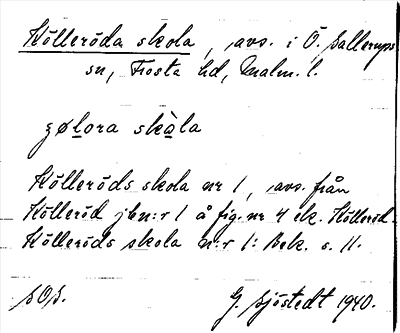 Kölleröda skola, avs. i Ö. Sallerups
sn, Frosta hd, Malm. l.
skola
Kölleröds skola nr 1, avs. från
Kölleröd jbn:r 1 å fig. nr 4 ek. Kölleröd.
Kölleröds skola n:r 1: Bek. s. 11.
SOS.
G. Sjöstedt 1940.